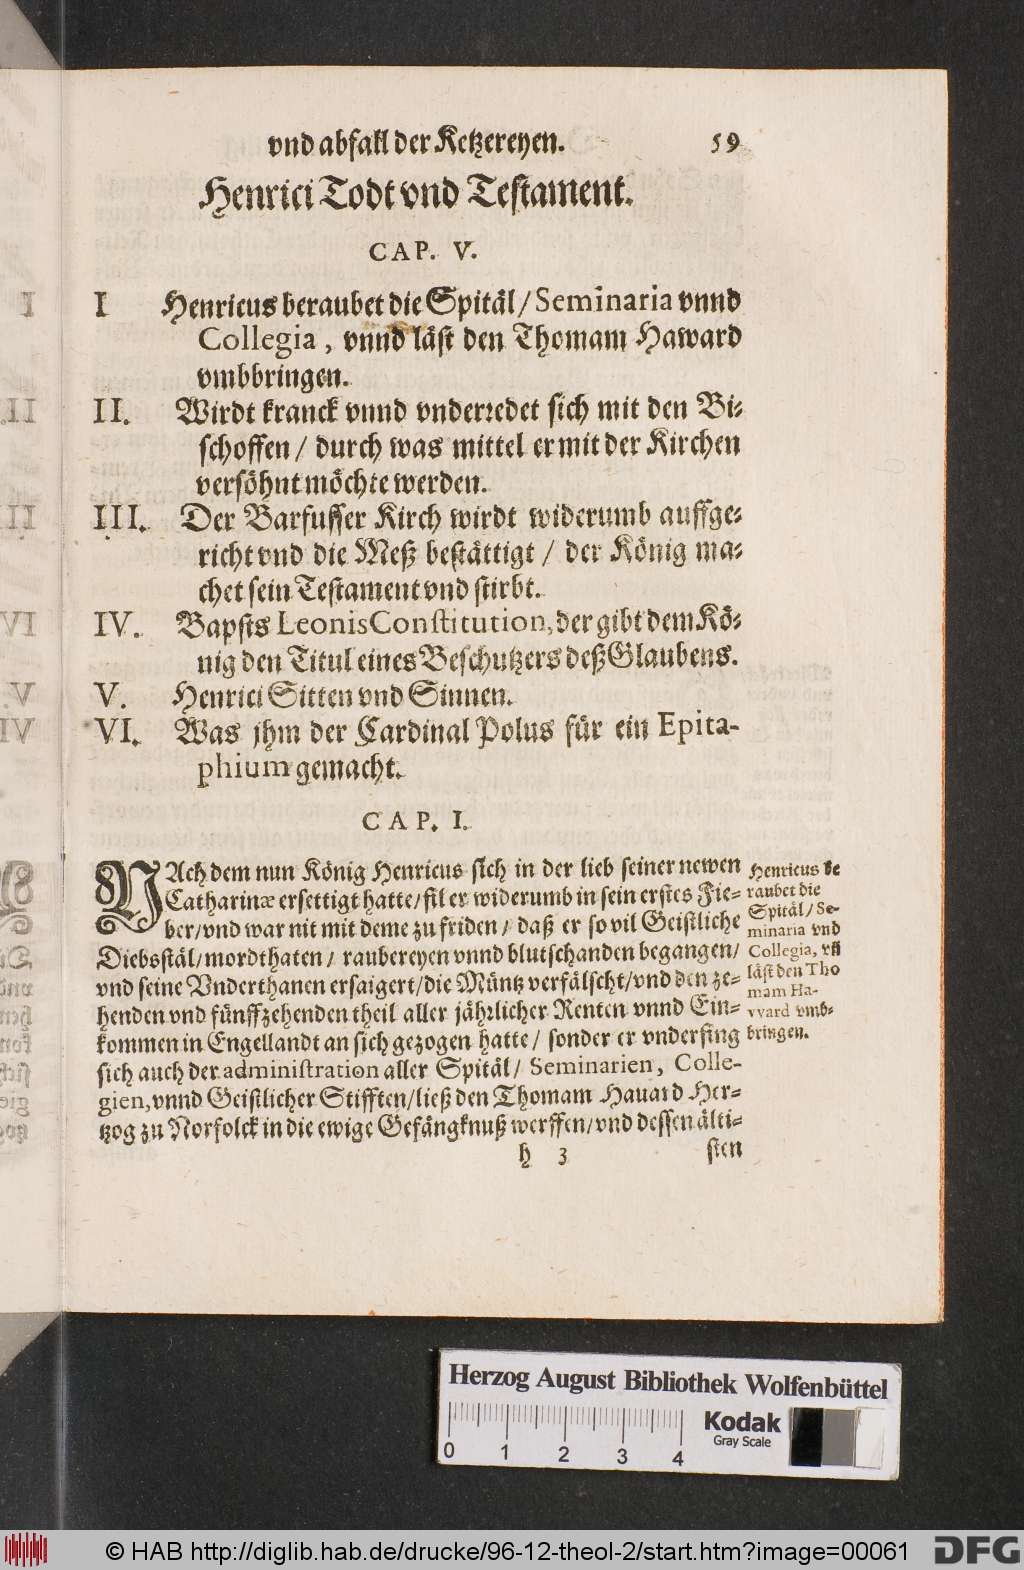 vnd abfall der Ketzereyen. 59
Henrici Todt vnd Testament.
CAP. V.
I Henricus beraubet die Spitäl / Seminaria vnnd
Collegia, vnnd läst den Thomam Haward
vmbbringen.
II. Wirdt kranck vnnd vnderredet sich mit den Bi-
schoffen / durch was mittel er mit der Kirchen
versöhnt möchte werden.
III. Der Barfusser Kirch wirdt widerumb auffge-
richt vnd die Meß bestättigt / der König ma-
chet sein Testament vnd stirbt.
IV. Bapsts Leonis Constitution, der gibt dem Kö-
nig den Titul eines Beschutzers deß Glaubens.
V. Henrici Sitten vnd Sinnen.
VI. Was jhm der Cardinal Polus für ein Epita-
phium gemacht.
CAP. I.
NAch dem nun König Henricus sich in der lieb seiner newen
Catharinæ ersettigt hatte / fil er widerumb in sein erstes Fie-
ber / vnd war nit mit deme zu friden / daß er so vil Geistliche
Diebsstäl / mordthaten / raubereyen vnnd blutschanden begangen /
vnd seine Vnderthanen ersaigert / die Müntz verfälscht / vnd den ze-
henden vnd fünffzehenden theil aller jährlicher Renten vnnd Ein-
kommen in Engellandt an sich gezogen hatte / sonder er vnderfing
sich auch der administration aller Spitäl / Seminarien, Colle-
gien, vnnd Geistlicher Stifften / ließ den Thomam Hauard Her-
tzog zu Norfolck in die ewige Gefängknuß werffen / vnd dessen älti-
h 3 sten
Henricus be
raubet die
Spitäl / Se-
minaria vnd
Collegia, vñ
läst den Tho
mam Ha-
vvard vmb-
bringen.
Herzog August Bibliothek Wolfenbüttel
0 1 2 3 4
Kodak
Gray Scale
© HAB http://diglib.hab.de/drucke/96-12-theol-2/start.htm?image=00061
DFG